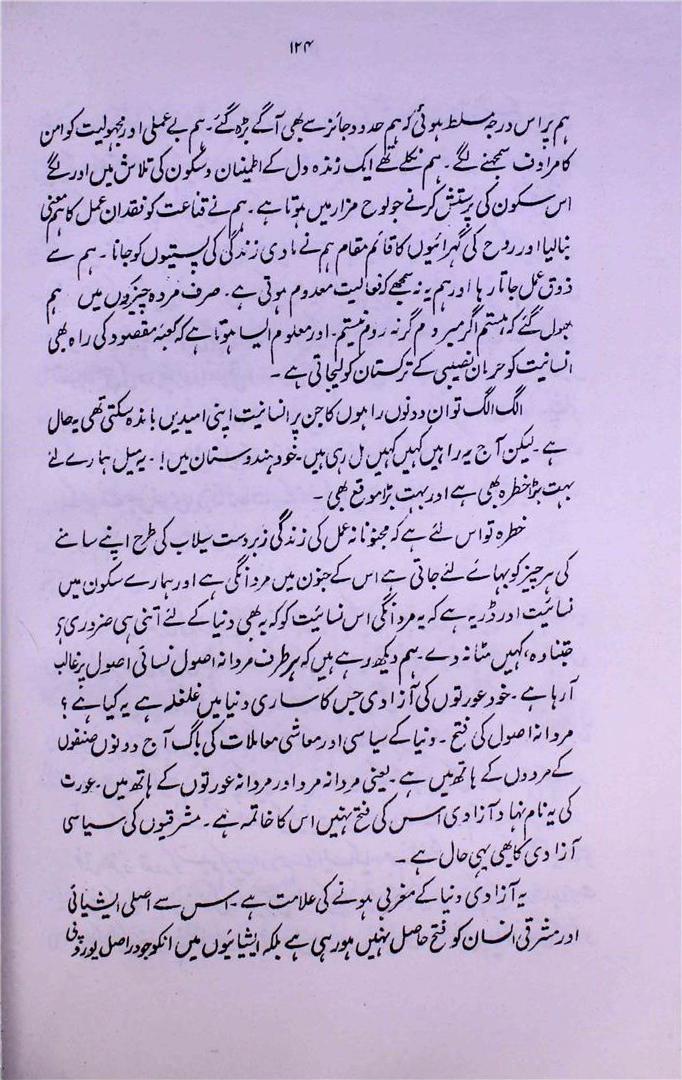 ۱۲۴
ہم پر اس درجہ مسلط ہوئی کہ ہم حدود جائز سے بھی آگے بڑھ گئے۔ ہم بے عملی اور مجہولیت کو امن
کا مرادف سمجھنے لگے۔ ہم نکلے تھے ایک زندہ دل کے اطمینان و سکون کی تلاش میں اور لگے
اس سکون کی پرستش کرنے جو لوح مزار میں ہوتا ہے۔ ہم نے قناعت کو فقدان عمل کا ہم معنی
بنالیا اور روح کی گہرائیوں کا قائم مقام ہم نے مادی زندگی کی پستیوں کو جانا۔ ہم سے
ذوق عمل جاتا رہا اور ہم یہ نہ سمجھے کہ فعالیت معدوم ہوتی ہے۔ صرف مردہ چیزوں میں ہم
بھول گئے کہ ہستم اگر میروم گر نہ روم نیستم۔ اور معلوم ایسا ہوتا ہے کہ کعبۂ مقصود کی راہ بھی
انسانیت کو حرمان نصیبی کے ترکستان کو لیجاتی ہے۔
الگ الگ تو ان دونوں راہوں کا جن پر انسانیت اپنی امیدیں باندھ سکتی تھی یہ حال
ہے۔ لیکن آج یہ راہیں کہیں کہیں مل رہی ہیں۔ خود ہندوستان میں!۔ یہ میل ہمارے لئے
بہت بڑا خطرہ بھی ہے اور بہت بڑا موقع بھی۔
خطرہ تو اس لئے ہے کہ مجنونانہ عمل کی زندگی زبردست سیلاب کی طرح اپنے سامنے
کی ہر چیز کو بہائے لئے جاتی ہے اس کے جنون میں مردانگی ہے اور ہمارے سکون میں
نسائیت اور ڈر یہ ہے کہ یہ مردانگی اس نسائیت کو کہ یہ بھی دنیا کے لئے اتنی ہی ضروری ہے
جتنا وہ، کہیں مٹا نہ دے۔ ہم دیکھ رہے ہیں کہ ہر طرف مردانہ اصول نسائی اصول پر غالب
آرہا ہے۔ خود عورتوں کی آزادی جس کا ساری دنیا میں غلغلہ ہے یہ کیا ہے؟
مردانہ اصول کی فتح۔ دنیا کے سیاسی اور معاشی معاملات کی باگ آج دونوں صنفوں
کے مردوں کے ہاتھ میں ہے۔ یعنی مردانہ مرد اور مردانہ عورتوں کے ہاتھ میں۔ عورت
کی یہ نام نہاد آزادی اس کی فتح نہیں اس کا خاتمہ ہے۔ مشرقیوں کی سیاسی
آزادی کا بھی یہی حال ہے۔
یہ آزادی دنیا کے مغربی ہونے کی علامت ہے۔ اس سے اصلی ایشیائی
اور مشرقی انسان کو فتح حاصل نہیں ہورہی ہے بلکہ ایشیائیوں میں انکو جو دراصل یورپی